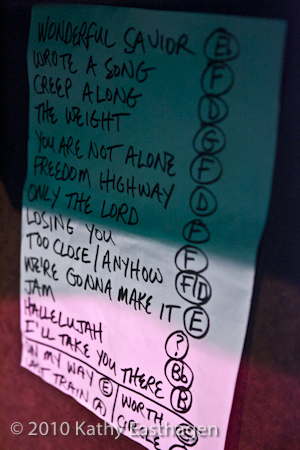 WONDERFUL SAVIOR E
WROTE A SONG F
CREEP ALONG D
THE WEIGHT G
YOU ARE NOT ALONE F
FREEDOM HIGHWAY D
ONLY THE LORD E
LOSING YOU F
TOO CLOSE/ANYHOW F/D
WE'RE GONNA MAKE IT E
JAM ?
HALLELUJAH Bb
I'LL TAKE YOU THERE B
ON MY WAY E WORTH
TRAIN A CIRCLE
© 2010 Kathy Easthagen